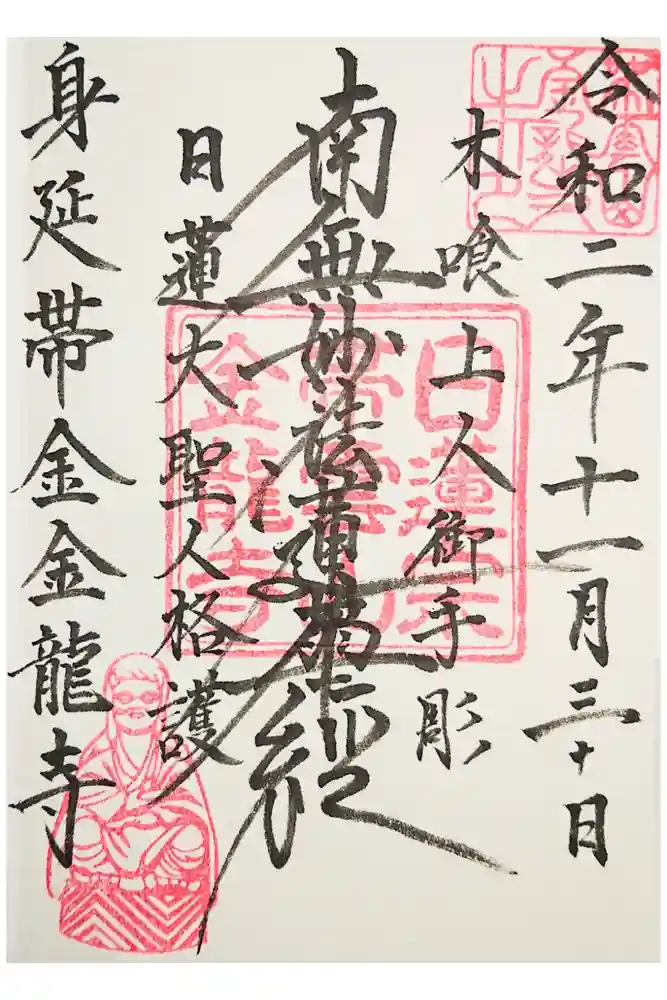 令和二年十一月三十日
木喰上人御手彫
南無妙法蓮華經
日蓮大聖人格護
身延帯金金龍寺
日蓮宗
金龍寺